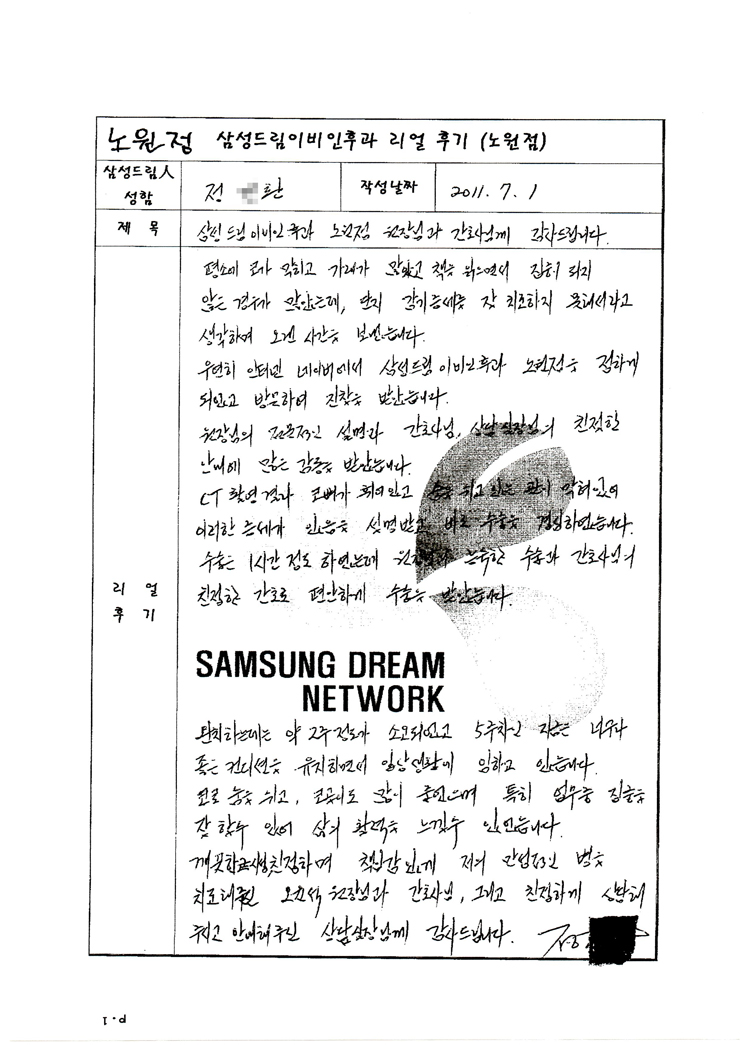 노원점 삼성드림이비인후과 리얼 후기 (노원점)
삼성드림人
성함
정 환
작성날짜
2011. 7. 1
제 목
삼성드림이비인후과 노원점 원장님과 간호사님께 감사드립니다.
평소에 코가 막히고 가래가 많았고 책을 읽으면서 집중이 되지
않는 경우가 많았는데, 단지 감기증세를 잘 치료하지 못해서라고
생각하며 오랜 시간을 보냈습니다.
우연히 인터넷 네이버에서 삼성드림이비인후과 노원점을 접하게
되었고 방문하여 진찰을 받았습니다.
원장님의 전문적인 설명과 간호사님, 상담실장님의 친절한
안내에 많은 감동을 받았습니다.
CT 촬영결과 코뼈가 휘어있고 숨을 쉬고 있는 관이 막혀있어
이러한 증세가 있음을 설명받고 바로 수술을 결정하였습니다.
수술은 1시간 정도 하였는데 원장님의 능숙한 수술과 간호사님의
친절한 간호로 편안하게 수술을 받았습니다.
리 얼
후 기
SAMSUNG DREAM
NETWORK
완치하는데는 약 2주정도가 소요되었고 5주차인 지금은 너무나
좋은 컨디션을 유지하면서 일상생활에 임하고 있습니다.
코로 숨을 쉬고, 코골이도 많이 줄었으며 특히 업무중 집중을
잘 할수 있어 삶의 활력을 느낄수 있었습니다.
깨끗하고 친절하며 책임감있게 저의 만성적인 병을
치료해주신 원장님과 간호사님, 그리고 친절하게 상담해
주시고 안내해주신 상담실장님께 감사드립니다.
P.1